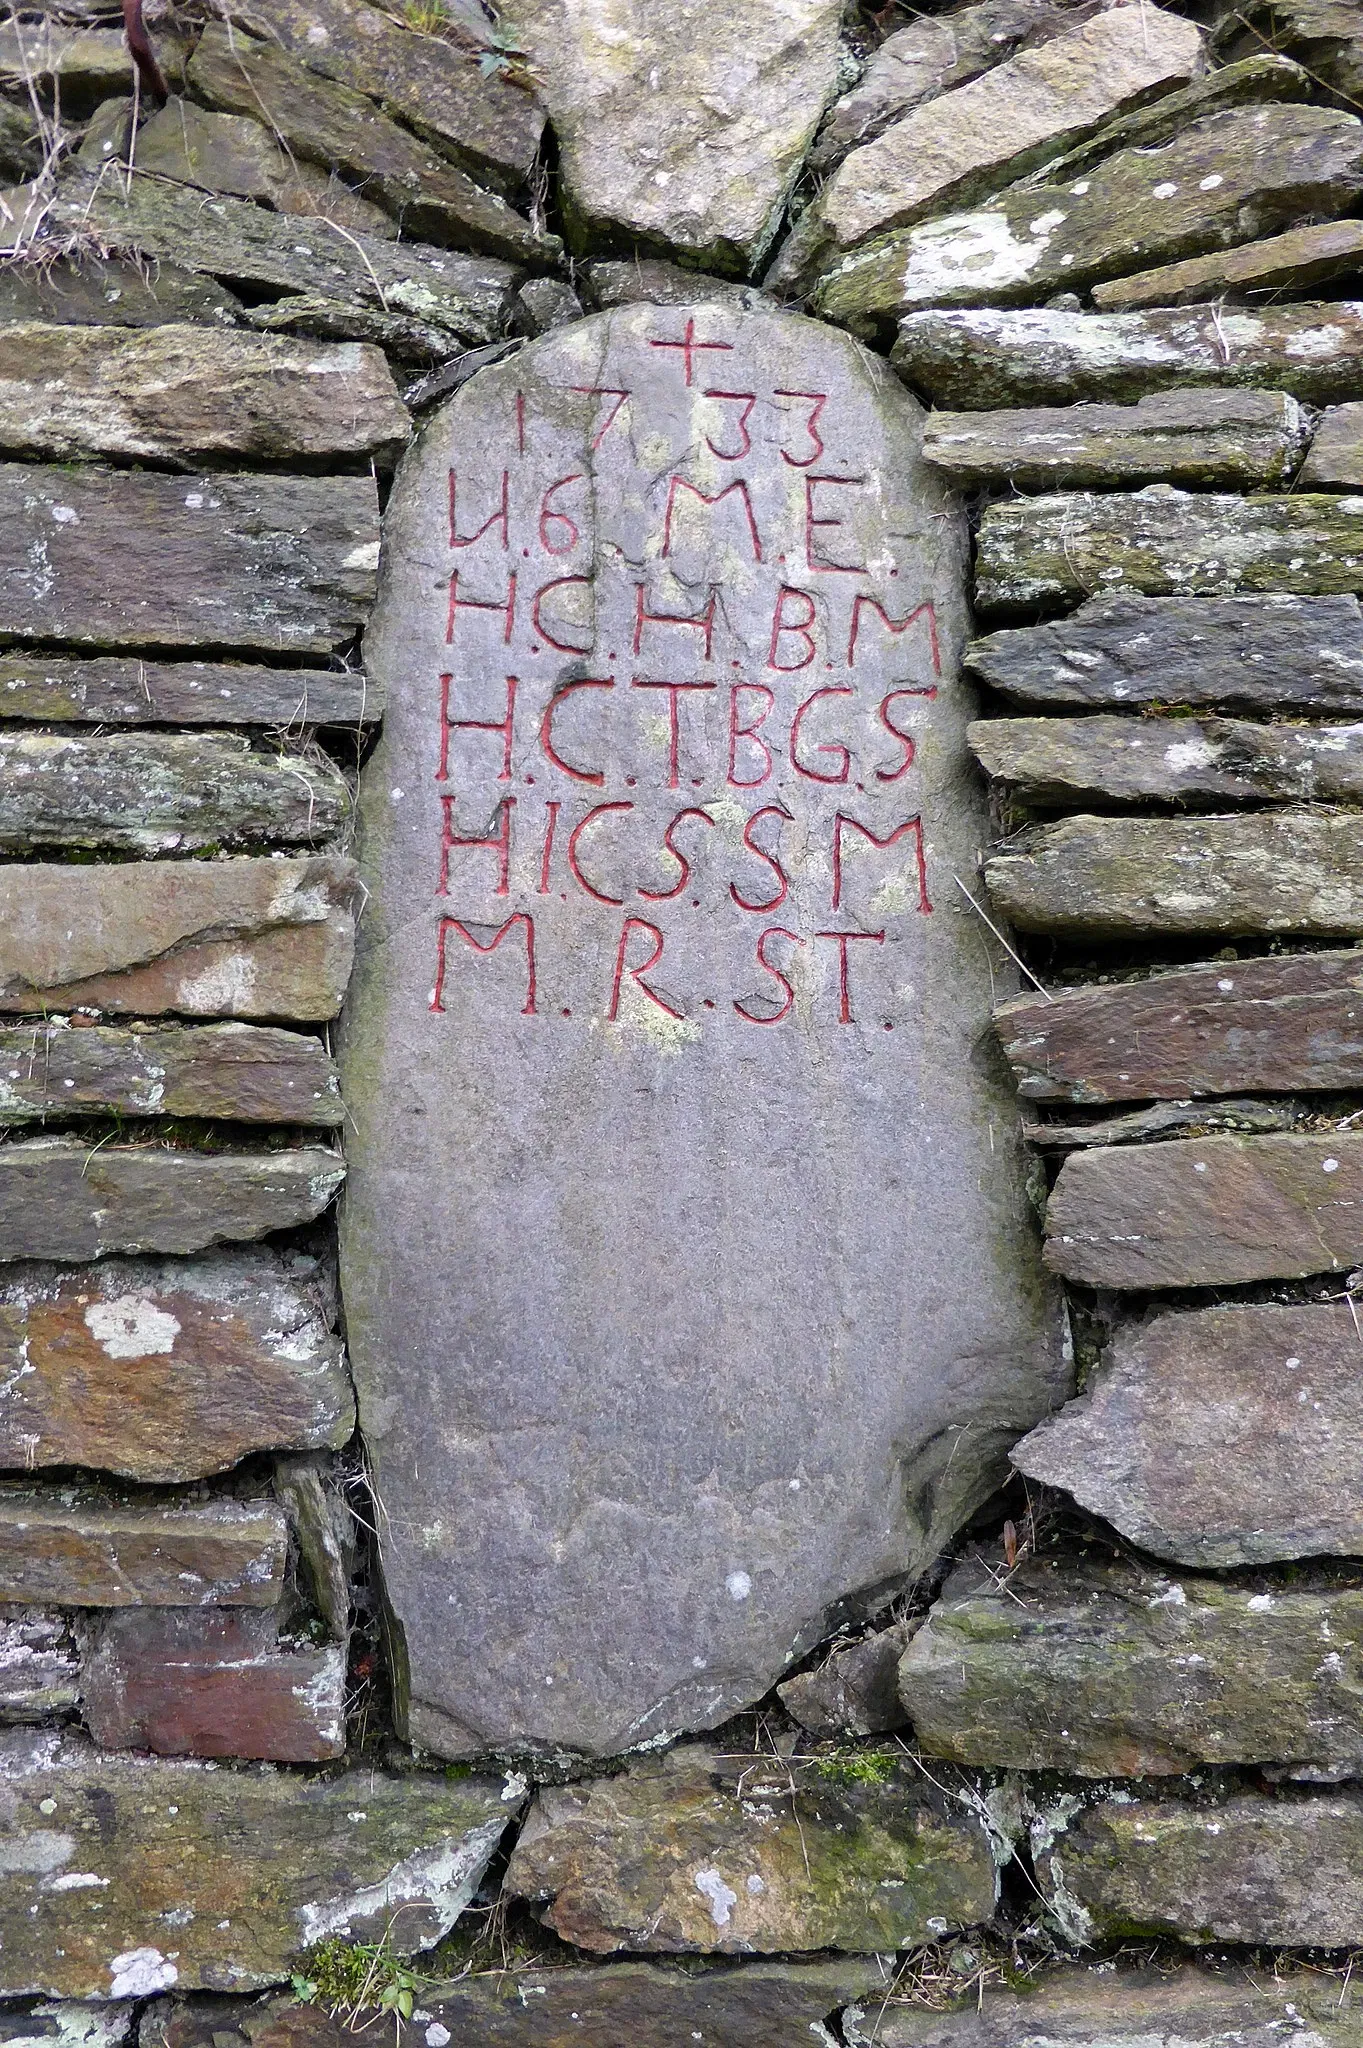 +
1733.
И.6.M.E.
H.C.H.B.M
H.C.T.B.G.S
H.I.C.S.S M
M.R.ST.